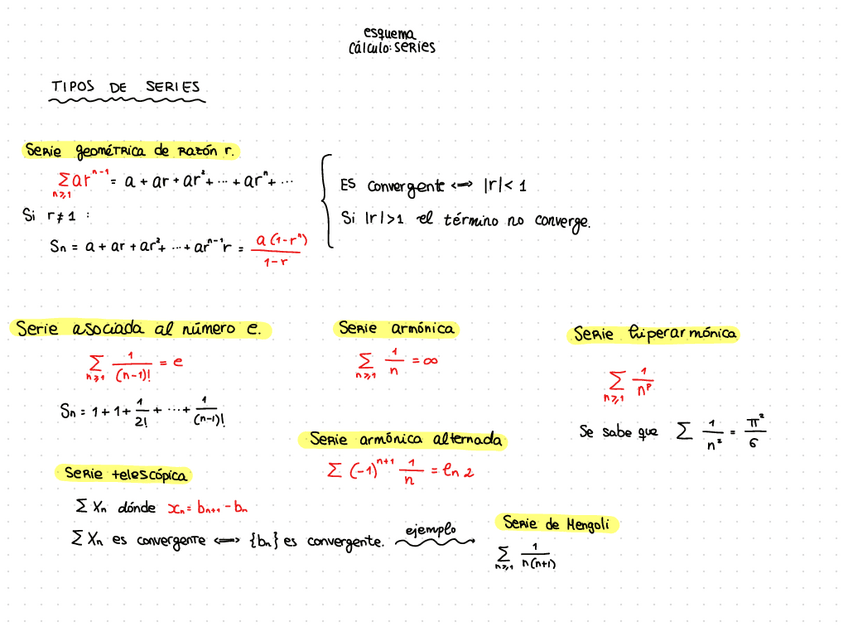 esquema
cálculo: series
TIPOS DE SERIES
Serie geométrica de razón r.
∑ₙ≥₁ arⁿ⁻¹ = a + ar + ar² + ... + arⁿ + ...
Es convergente <=> |r| < 1
Si r ≠ 1 :
Si |r| > 1 el término no converge.
Sn = a + ar + ar² + ... + arⁿ⁻¹r = a(1-rⁿ) / 1-r
Serie asociada al número e.
∑ₙ≥₁ 1/(n-1)! = e
Sn = 1 + 1 + 1/2! + ... + 1/(n-1)!
Serie armónica
∑ₙ≥₁ 1/n = ∞
Serie hiperarmónica
∑ₙ≥₁ 1/nᵖ
Se sabe que ∑ 1/n² = π²/6
Serie armónica alternada
∑ (-1)ⁿ⁺¹ 1/n = ln 2
Serie telescópica
∑ Xn dónde xn = bn+1 - bn
∑ Xn es convergente <=> {bn} es convergente. ejemplo
Serie de Mengoli
∑ₙ≥₁ 1/n(n+1)